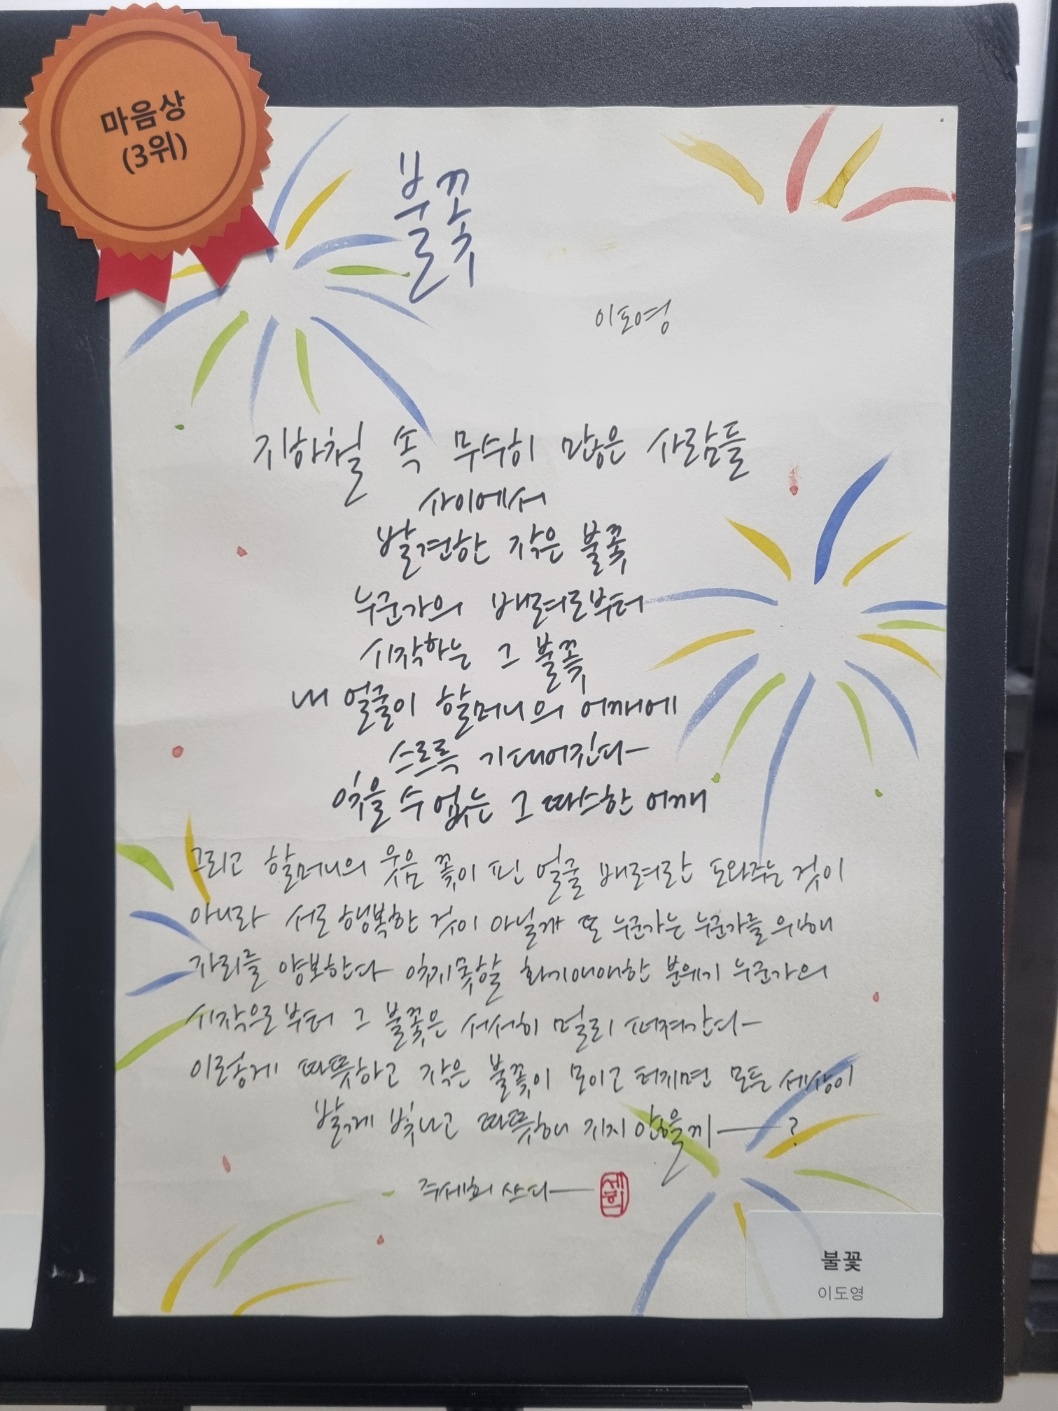 마음상
(3위)
불꽃
이도영
지하철 속 무수히 많은 사람들
사이에서
발견한 작은 불꽃
누군가의 배려로부터
시작하는 그 불꽃
내 얼굴이 할머니의 어깨에
스르륵 기대어진다
잊을 수 없는 그 따스한 어깨
그리고 할머니의 웃음 꽃이 핀 얼굴 배려란 도와주는 것이
아니라 서로 행복한 것이 아닐까 또 누군가는 누군가를 위해
자리를 양보한다 잊지못할 화기애애한 분위기 누군가의
시작으로부터 그 불꽃은 서서히 멀리 퍼져간다
이렇게 따뜻하고 작은 불꽃이 모이고 터지면 모든 세상이
밝게 빛나고 따뜻해 지지 않을까?
주세희 쓰다
세희
불꽃
이도영